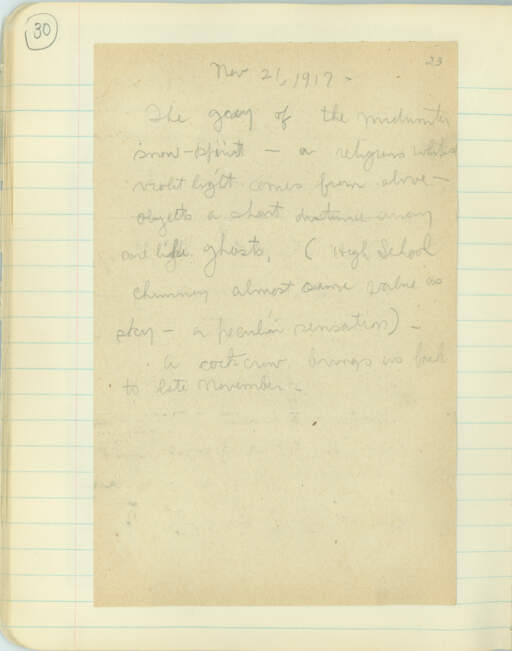 30
23
Nov 21, 1917 -
The glory of the midwinter
snow-spirit — a religious white
violet light comes from above —
objects a short distance away
are like ghosts, ( High School
chimney almost same value as
sky — a peculiar sensation) —
a cock-crow brings us back
to late November —